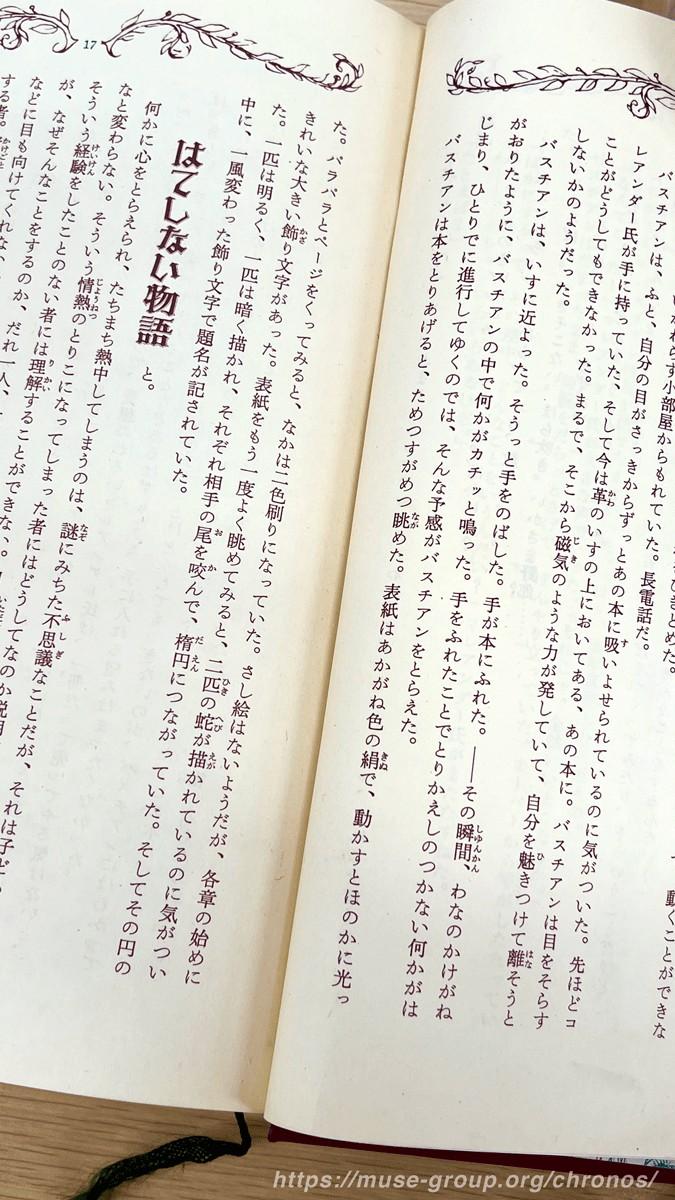 いかわらず小部屋からもれていた。長電話だ。
バスチアンは、ふと、自分の目がさっきからずっとあの本に吸いよせられているのに気がついた。先ほどコ
レアンダー氏が手に持っていた、そして今は革のいすの上においてある、あの本に。バスチアンは目をそらす
ことがどうしてもできなかった。まるで、そこから磁気のような力が発していて、自分を魅きつけて離そうと
しないかのようだった。
バスチアンは、いすに近よった。そうっと手をのばした。手が本にふれた。――その瞬間、わなのかけがね
がおりたように、バスチアンの中で何かがカチッと鳴った。手をふれたことでとりかえしのつかない何かがは
じまり、ひとりでに進行してゆくのでは、そんな予感がバスチアンをとらえた。
バスチアンは本をとりあげると、ためつすがめつ眺めた。表紙はあかがね色の絹で、動かすとほのかに光っ
17
た。パラパラとページをくってみると、なかは二色刷りになっていた。さし絵はないようだが、各章の始めに
きれいな大きい飾り文字があった。表紙をもう一度よく眺めてみると、二匹の蛇が描かれているのに気がつい
た。一匹は明るく、一匹は暗く描かれ、それぞれ相手の尾を咬んで、楕円につながっていた。そしてその円の
中に、一風変わった飾り文字で題名が記されていた。
はてしない物語 と。
何かに心をとらえられ、たちまち熱中してしまうのは、謎にみちた不思議なことだが、それは子ども
なと変わらない。そういう情熱のとりこになってしまった者にはどうしてなのか説明
そういう経験をしたことのない者には理解することができない。
が、なぜそんなことをするのか、だれ一人、
などに目も向けてくれない
する者。
https://muse-group.org/chronos/